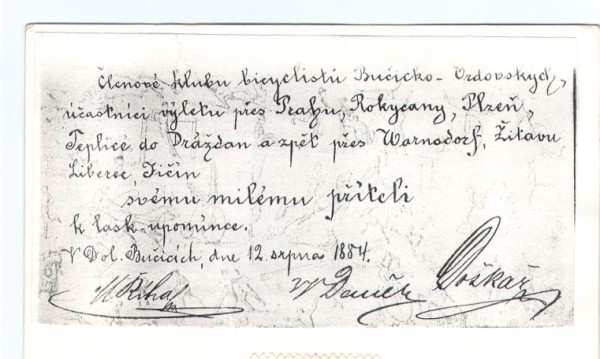 Členové klubu bicyclistů Bučicko-Vrdovských,
účastníci výletu přes Prahu, Rokycany, Plzeň,
Teplice do Drážďan a zpět přes Warnsdorf, Žitavu
Liberec Jičín
svému milému příteli
k lask. upomínce.
V Dol. Bučicích, dne 12. srpna 1884.
Říha W Daněk Doškař